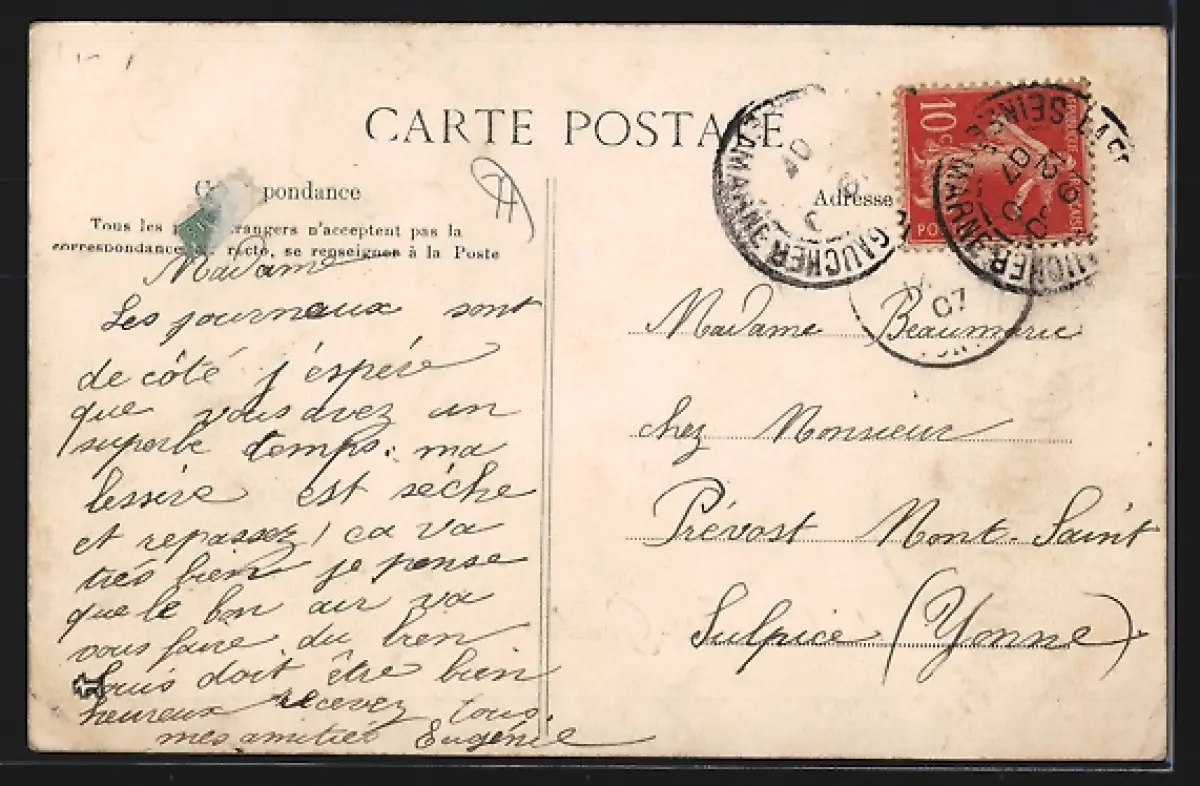 CARTE POSTALE
Correspondance
Tous les étrangers n'acceptent pas la
correspondance recto, se renseigner à la Poste
Adresse
10c
Madame
Les journaux sont
de côté j'éspére
que vous avez un
superbe temps. ma
lessive est sèche
et repassez, ca va
très bien je pense
que le bon air va
vous faire du bien
Louis doit être bien
heureux recevez tous
mes amitiés Eugénie
Madame Beaumerie
chez Monsieur
Prévost Mont-Saint
Sulpice (Yonne)
GAUCHER
SEINE & MARNE
07